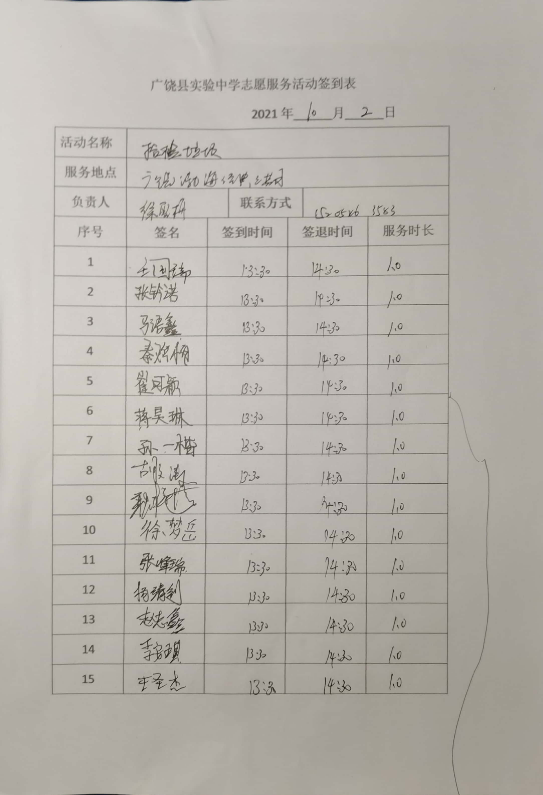 广饶县实验中学志愿服务活动签到表
2021 年 10 月 2 日
活动名称 捡拾垃圾
服务地点
负责人 联系方式
序号 签名 签到时间 签退时间 服务时长
1 13:30 14:30 1.0
2 张钤诺 13:30 14:30 1.0
3 马语鑫 13:30 14:30 1.0
4 13:30 14:30 1.0
5 翟可颖 13:30 14:30 1.0
6 蒋昊琳 13:30 14:30 1.0
7 孙一楠 13:30 14:30 1.0
8 13:30 14:30 1.0
9 13:30 14:30 1.0
10 徐梦岳 13:30 14:30 1.0
11 13:30 14:30 1.0
12 13:30 14:30 1.0
13 赵志鑫 13:30 14:30 1.0
14 13:30 14:30 1.0
15 王圣杰 13:30 14:30 1.0